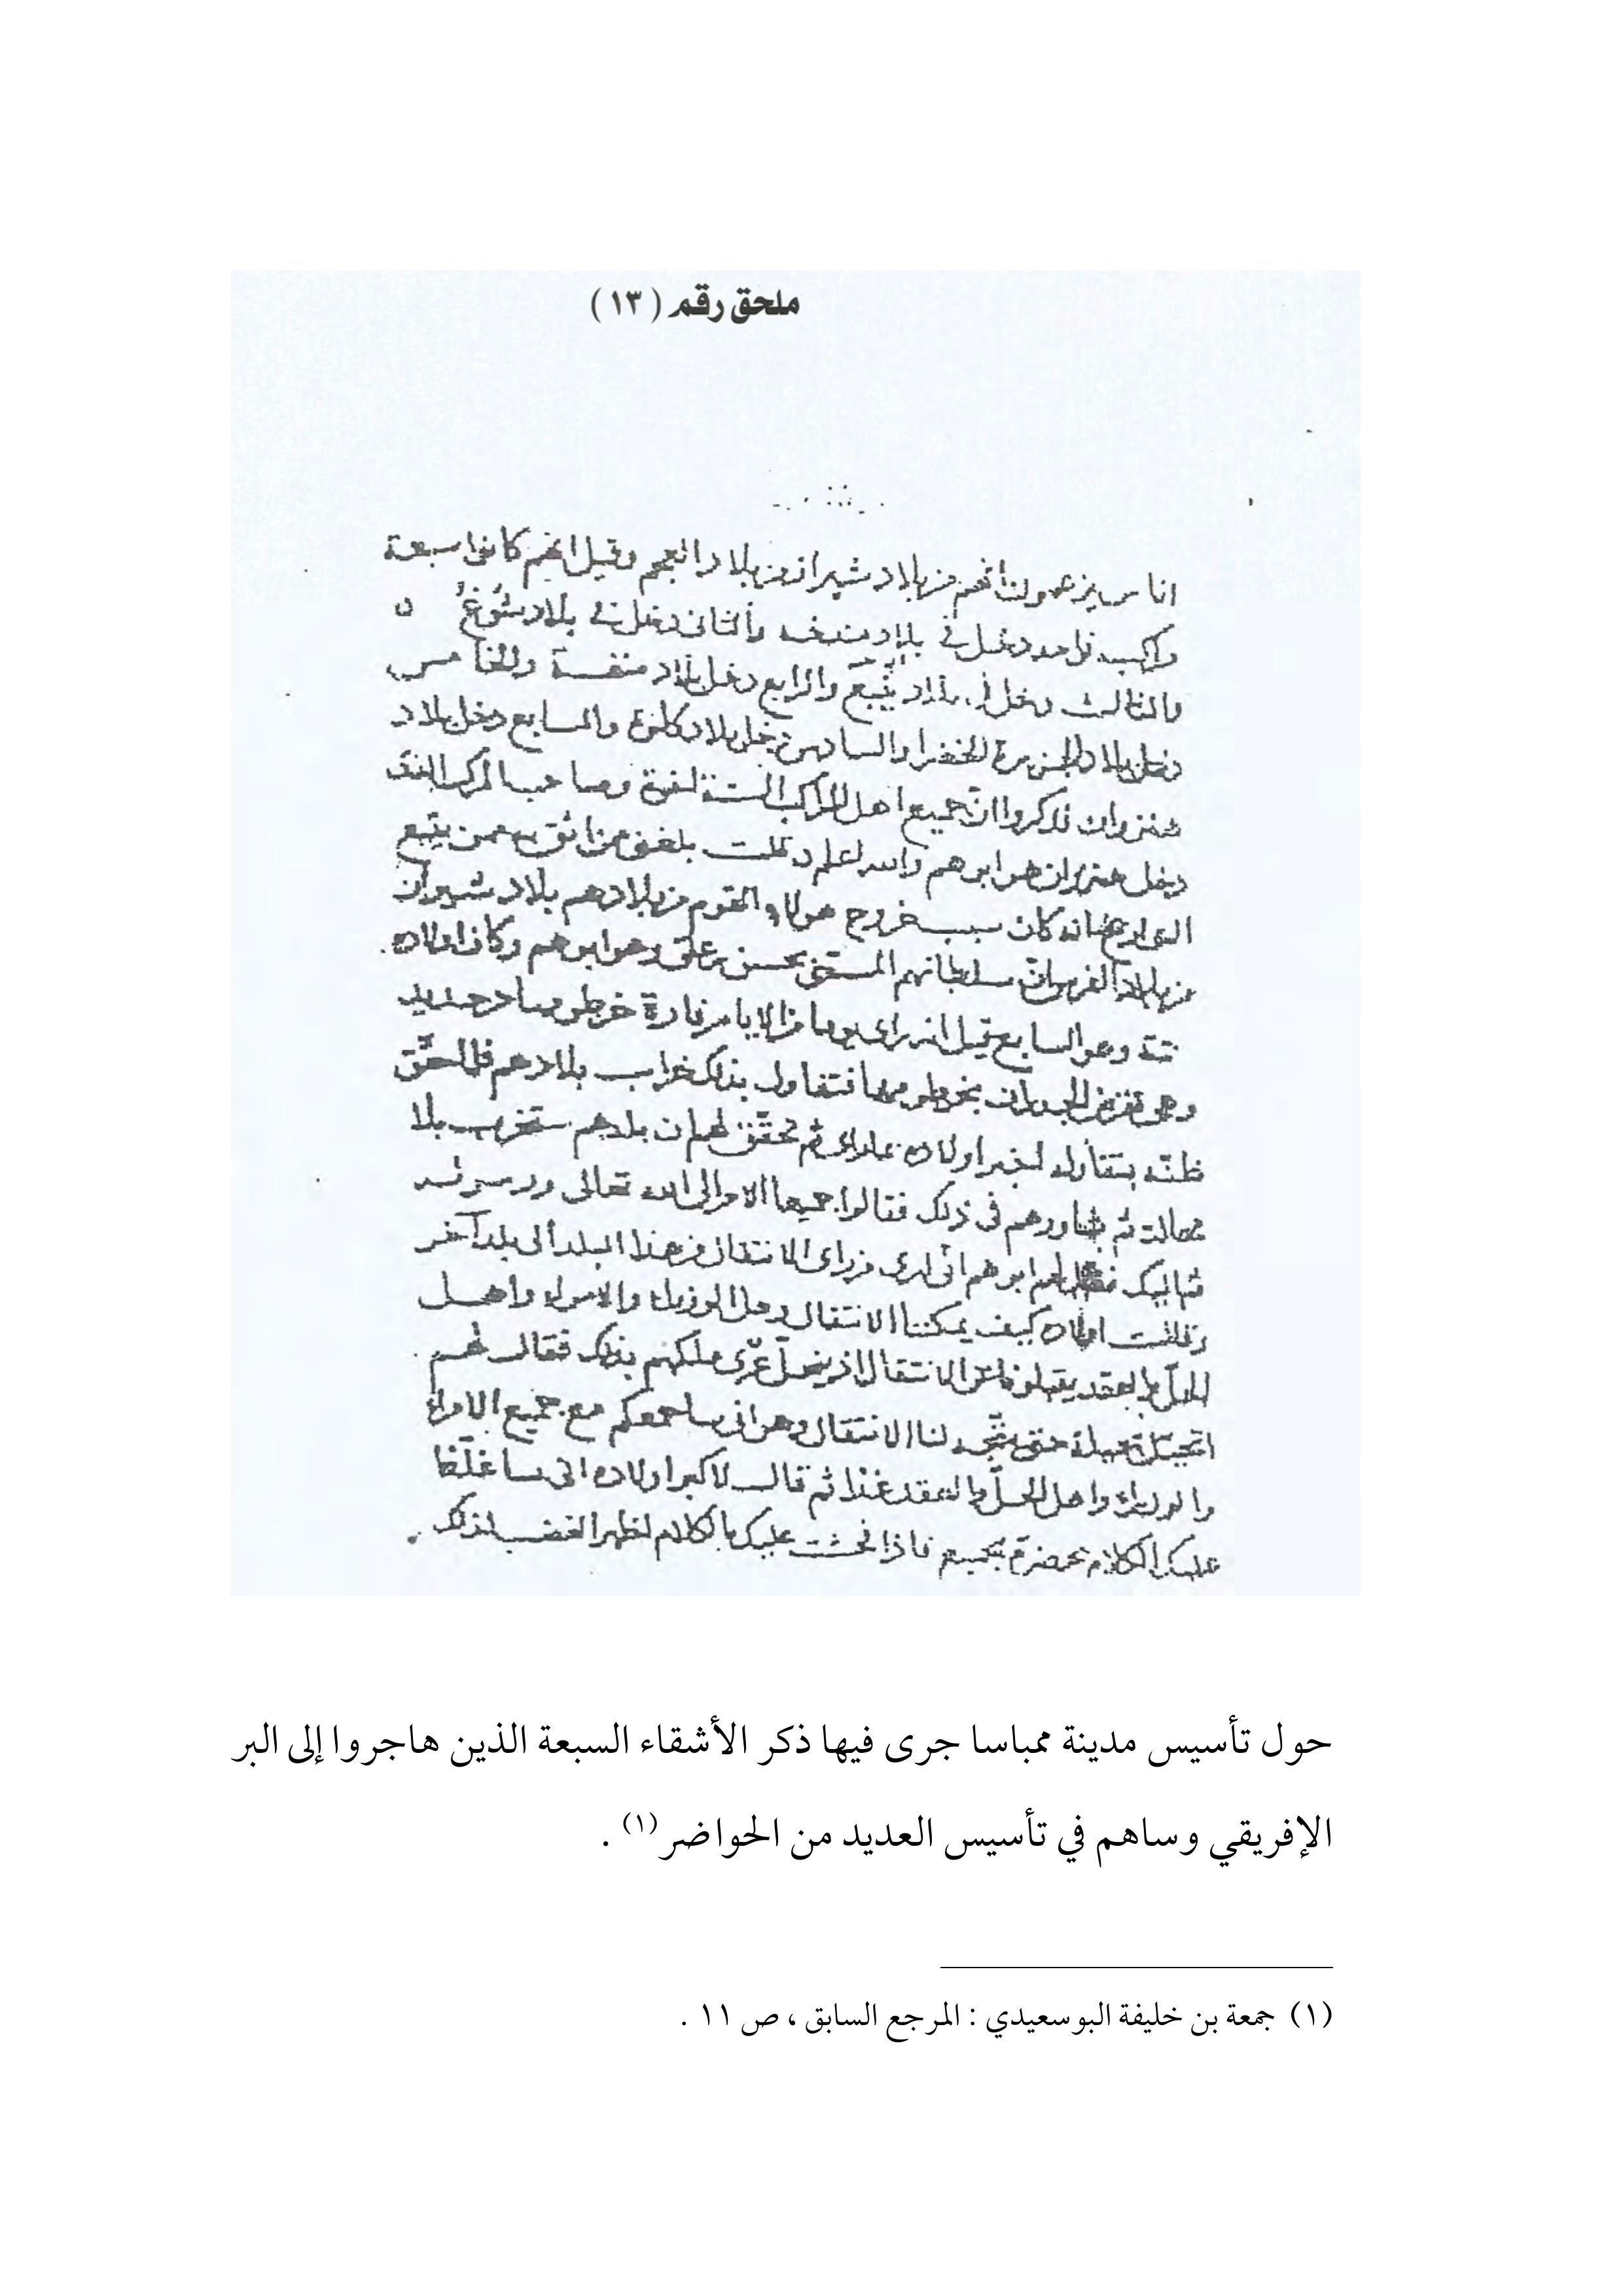 ملحق رقم (١٣)
اناس يزعمون انهم من بلاد شيراز من بلاد العجم وقيل انهم كانوا سبعة
مراكب فواحد دخل في بلاد مندخه والثاني دخل في بلاد شُوغُ ٥
والثالث دخل في بلاد يَنْبُعَ والرابع دخل بلاد منفسة والخامس
دخل بلاد الجزيرة الخضرا والسادس دخل بلاد كلوة والسابع دخل بلاد
هنزوان فذكروا انّ جميع اهل المراكب الستة اخوة وصاحب المركب الذي
دخل هنزوان هو ابوهم والله اعلم وقلت بلغني من اثق به ممن يتبع
انه كان سبب خروج هولاء القوم من بلادهم بلاد شيراز
من بلاد الفرس انّ سلطانهم المسمّى بحسن بن علي وهو ابوهم وكان اولاده
ستة وهو السابع قيل انه راى يوما من الايام فارة خرطومها حديد
وهى تقرض الجدران بخرطومها فتفاول بذلك خراب بلادهم فلما تحقّق
ظنّه بتفاوله اخبر اولاده بما راى ثم تحقّق لهم ان بلدهم ستخرب بلا
محالة ثم شاورهم في ذلك فقالوا جميعا الامر الى الله تعالى ورسوله
ثم اليك فقال لهم ابوهم انى ارى من راى الانتقال من هذا البلد الى بلد آخر
وقالت اولاده كيف يمكننا الانتقال وهل الوزراء والامراء واهل
الحلّ والعقد يقبلون الانتقال ملكهم بذلك فقال لهم
حيلة حتى لنا الانتقال وهو انى ساجمعكم مع جميع الامراء
والوزراء واهل الحلّ والعقد غدا ثم قال لاكبر اولاده انى ساغلّظ
عليك الكلام بحضرة الجميع فاذا عليك بالكلام اظهر الغضب لذلك
حول تأسيس مدينة ممباسا جرى فيها ذكر الأشقاء السبعة الذين هاجروا إلى البر
الإفريقي وساهم في تأسيس العديد من الحواضر (١) .
(١) جمعة بن خليفة البوسعيدي : المرجع السابق ، ص ١١ .